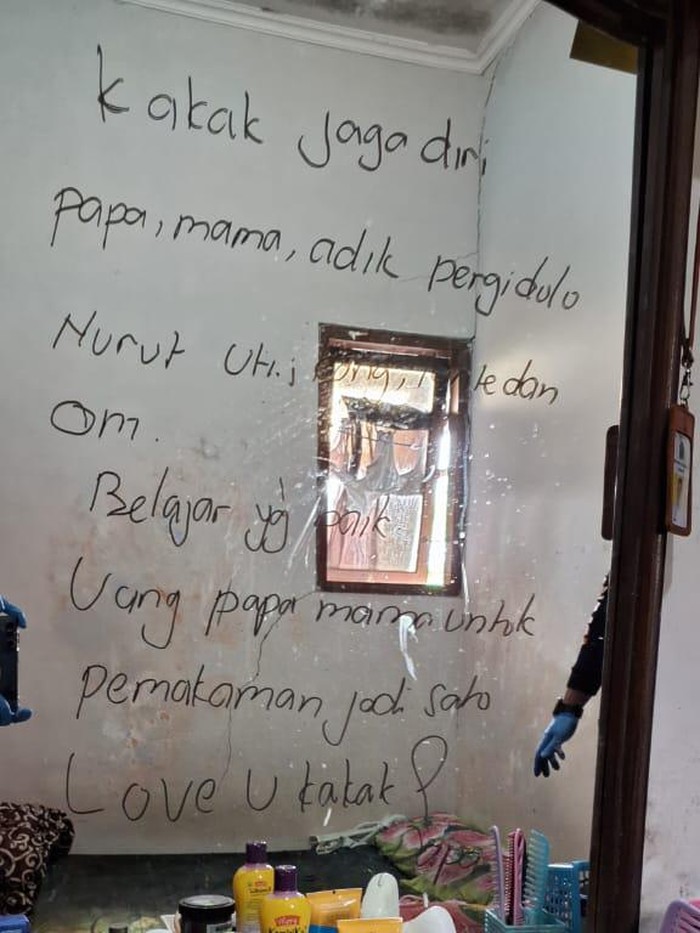 Kakak jaga diri
Papa, mama, adik pergi dulo
Nurut Uti, kung, te dan
Om.
Belajar yg baik
Uang papa mama untuk
pemakaman jadi sato
Love U kakak
Papa